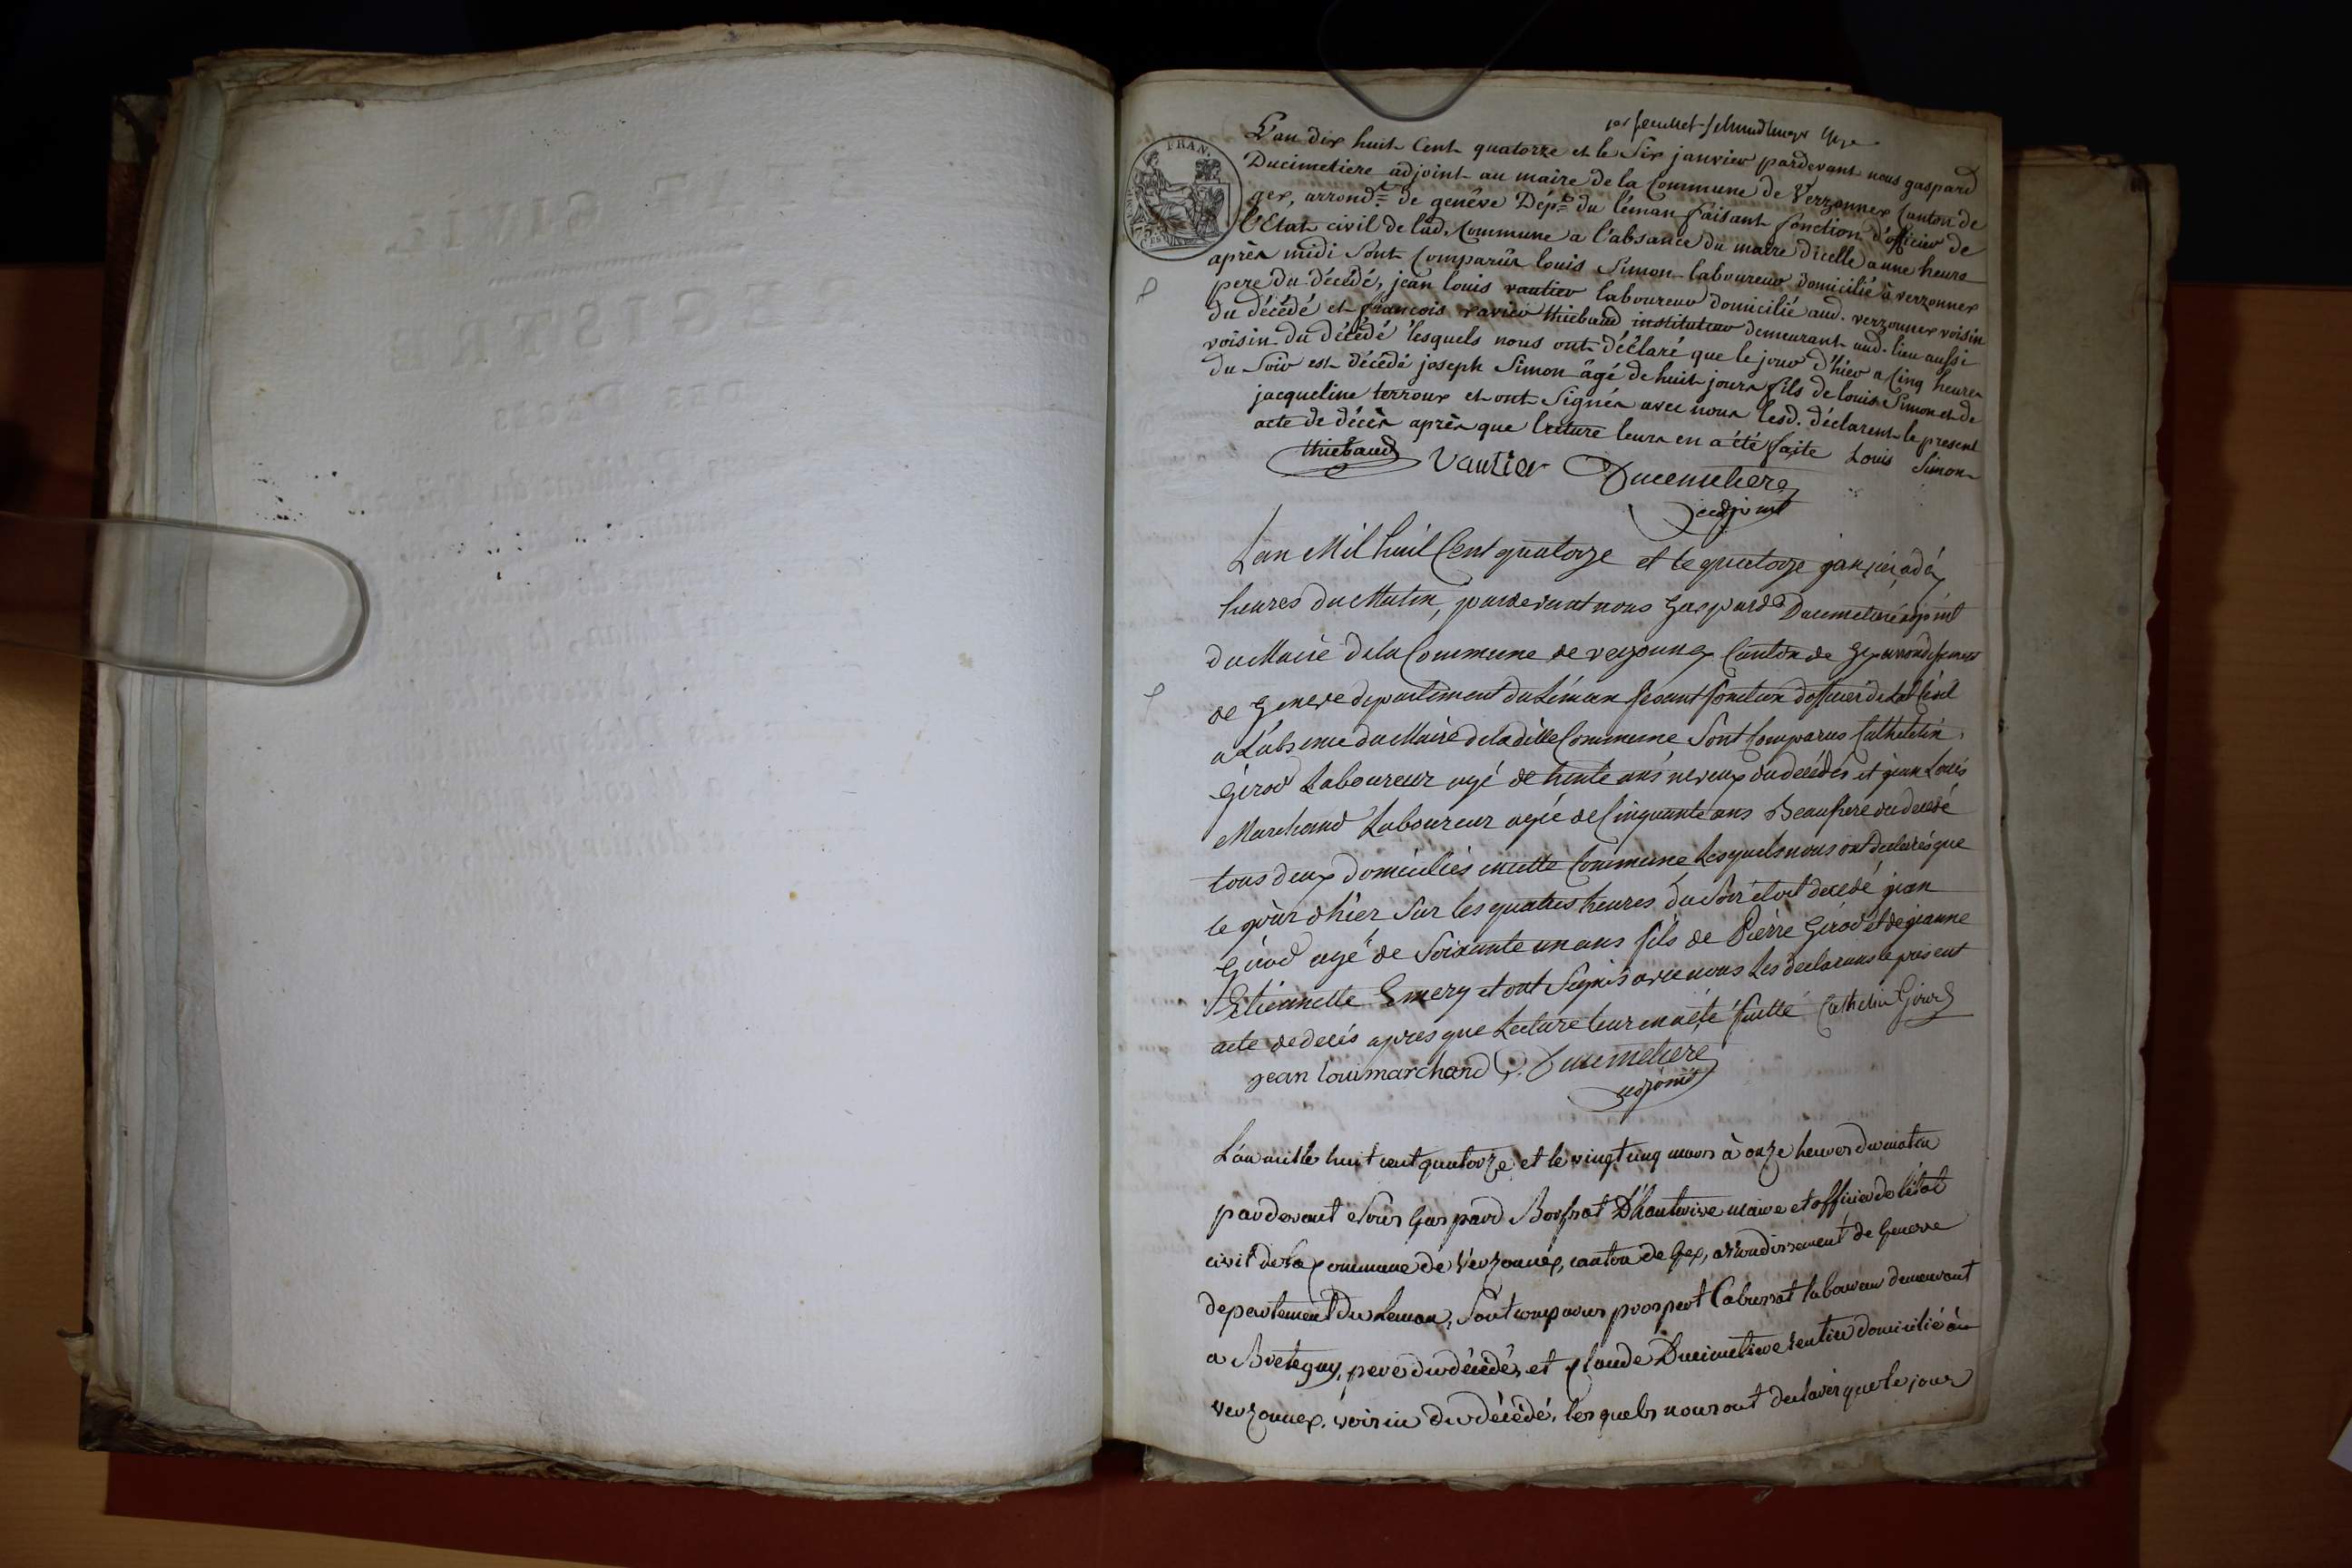 L'an dix huit Cent quatorze et le Six janvier pardevant nous gaspard
Ducimetiere adjoint au maire de la Commune de Verzonnex Canton de
gex, arrond.t de genève Dép.t du léman faisant fonction d'officier de
l'Etat civil de lad. Commune a l'absance du maire dicelle a une heure
après midi Sont Comparûs louis Simon laboureur domicilié à verzonnex
pere du décédé, jean louis vautier laboureur domicilié aud. verzonnex voisin
du décédé et françois xavier thiebaud instituteur demeurant aud. lieu aussi
voisin du décédé lesquels nous ont déclaré que le jour d'hier a Cinq heures
du Soir est décédé joseph Simon âgé de huit jours fils de louis Simon et de
jacqueline terroux et ont Signés avec nous lesd. déclarent le present
acte de décès après que lecture leurs en a été faite Louis Simon
thiebaud Vautier Ducimetiere
adjoint
Lan Mil huit Cent quatorze et le quatorze janvier a dix
heures du Matin, pardevant nous Gaspard Ducimetiere adjoint
du Maire de la Commune de verzonnex Canton de Gex arrondissement
de Geneve departement du Léman fesant fonction dofficier de Letat Civil
a Labsence du Maire de la ditte Commune Sont Comparus Cathelin
Girod Laboureur agé de trente ans neveux du decédés et jean Louis
Marchand Laboureur agée de Cinquante ans Beaufrere du decedé
tous deux domiciliés en cette Commune Lesquels nous ont declarés que
le jour d'hier Sur les quatres heures du Soir etoit decedé jean
Girod agé de Soixante un ans fils de Pierre Girod et de jeanne
Etiennette Emery et ont Signés avec nous Les declarans le present
acte de decés apres que Lecture leur en a eté faitte Cathelin Girod
jean loui marchand G. Ducimetiere
adjoint
L'an mille huit cent quatorze et le vingt cinq mars à onze heures du matin
pardevant Nous Gaspard Bossat D'hauterive maire et officier de l'état
civil de la Commune de Verzonnex, canton de Gex, arrondissement de Geneve
departement du Leman, Sont comparus prospert Cabussat laboureur demeurant
a Bretegny, pere du décédé, et Claude Ducimetiere rentier domicilié à
verzonnex. voisin du décédé, lesquels nous ont declarés que le jour